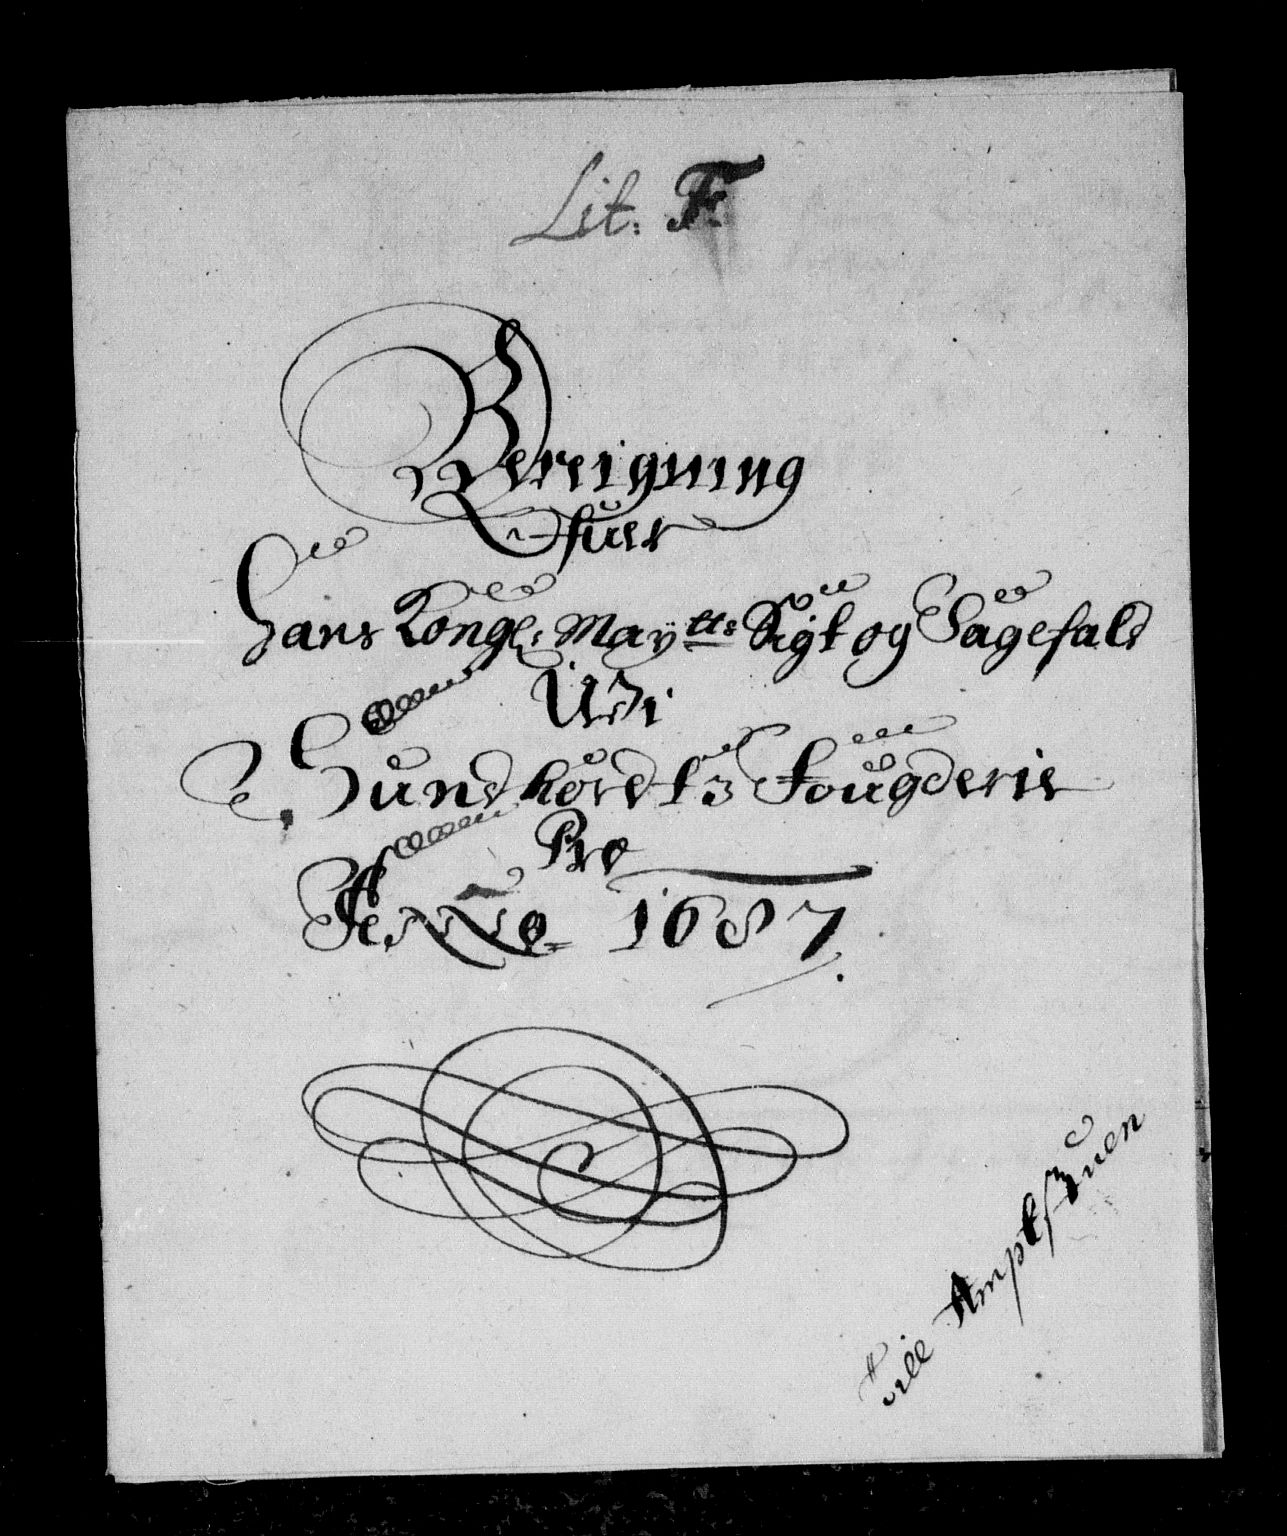 Lit. F.
Bereigning
for
Hans Kongl. Maÿtts Sigt og Sagefald
Udi
Hundhordtz Fougderie
Pro
Anno 1687.
till Ampts